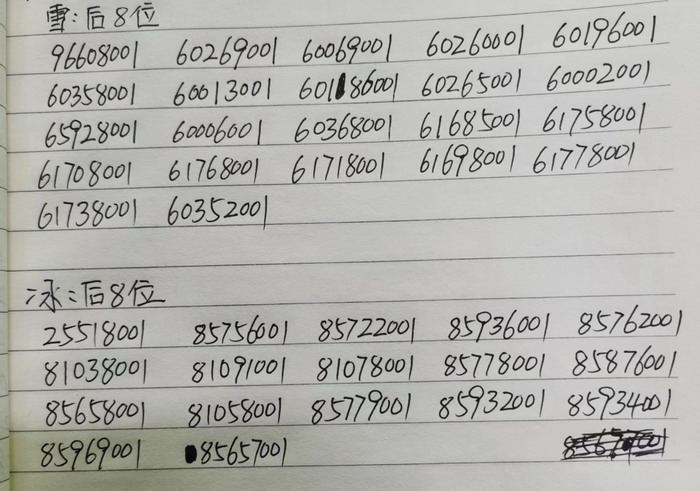 雪:后8位
96608001 60269001 60069001 60260001 60196001
60358001 60013001 60186001 60265001 60002001
65928001 60006001 60368001 61685001 61758001
61708001 61768001 61718001 61698001 61778001
61738001 60352001
冰:后8位
25518001 85756001 85722001 85936001 85762001
81038001 81091001 81078001 85778001 85876001
85658001 81058001 85779001 85932001 85934001
85969001 85657001